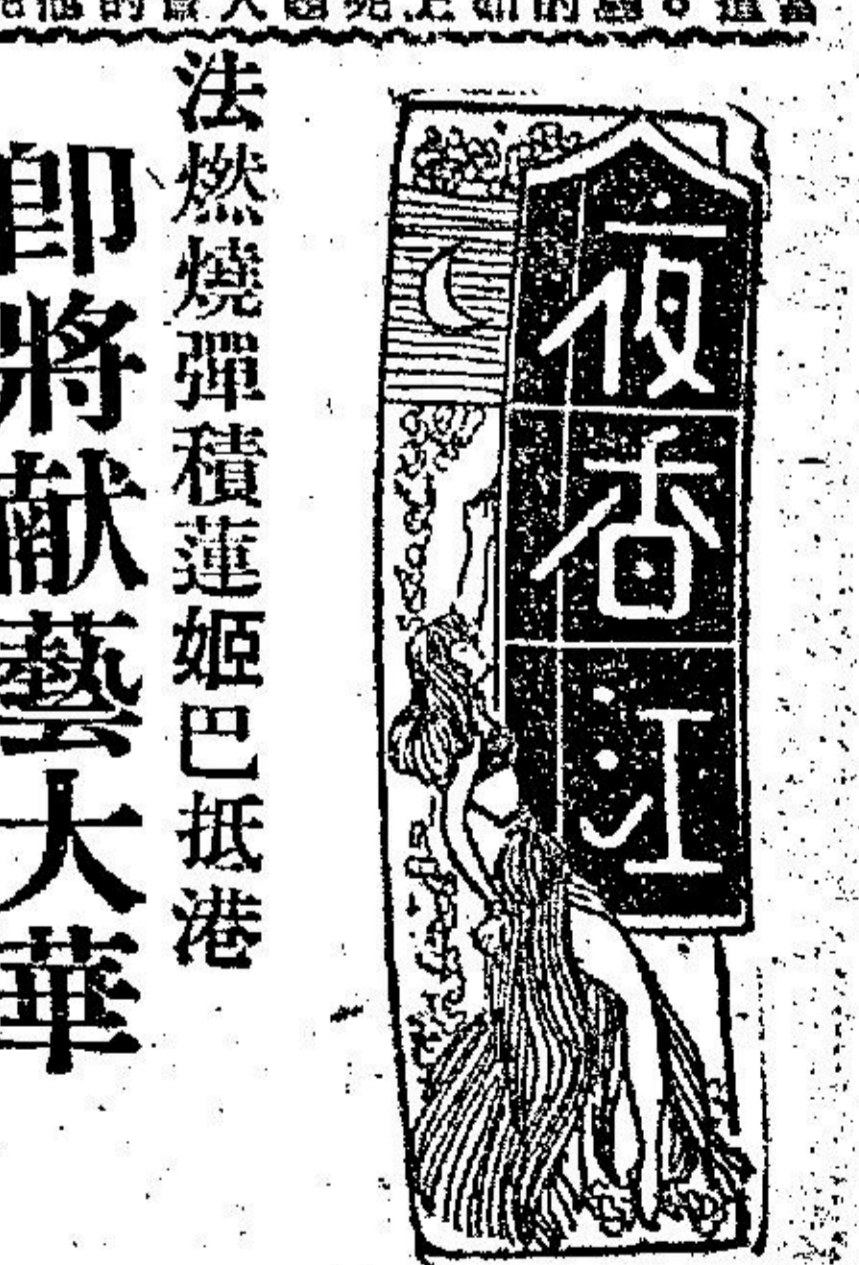 夜香江
法燃燒彈積蓮姬巴抵港
即將献藝大華